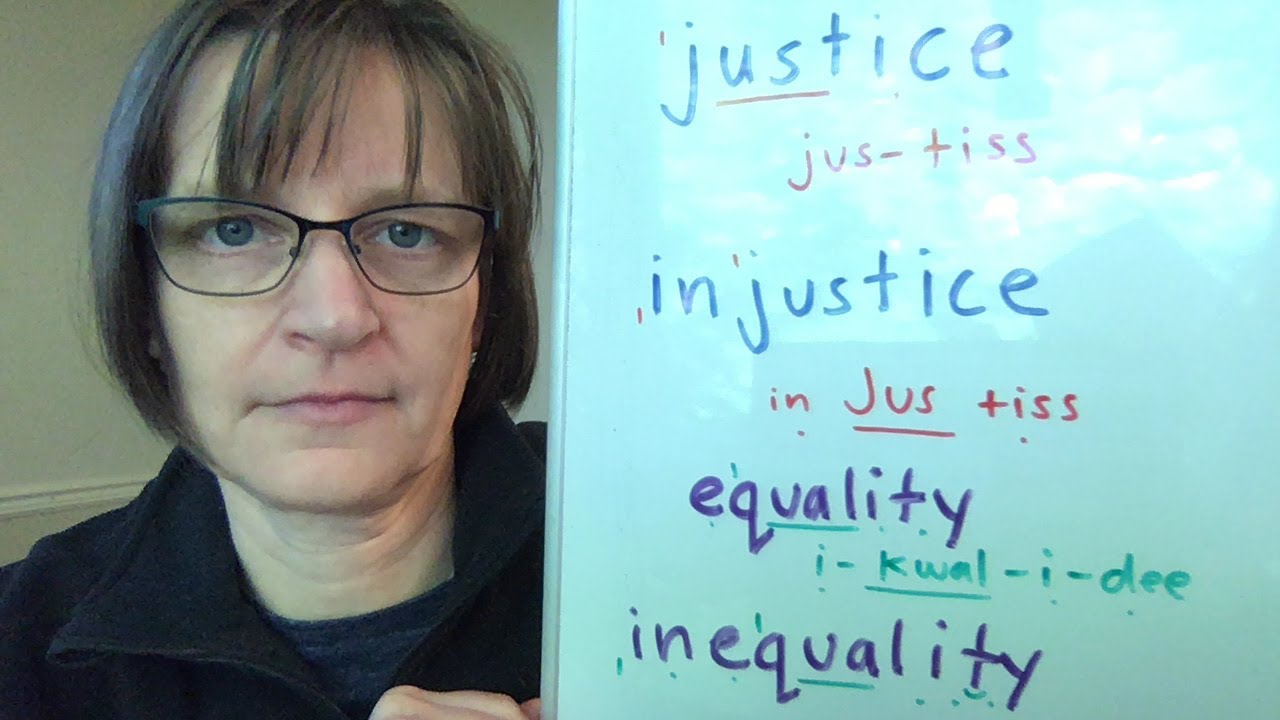 justice
jus-tiss
injustice
in Jus tiss
equality
i-kwal-i-dee
inequality